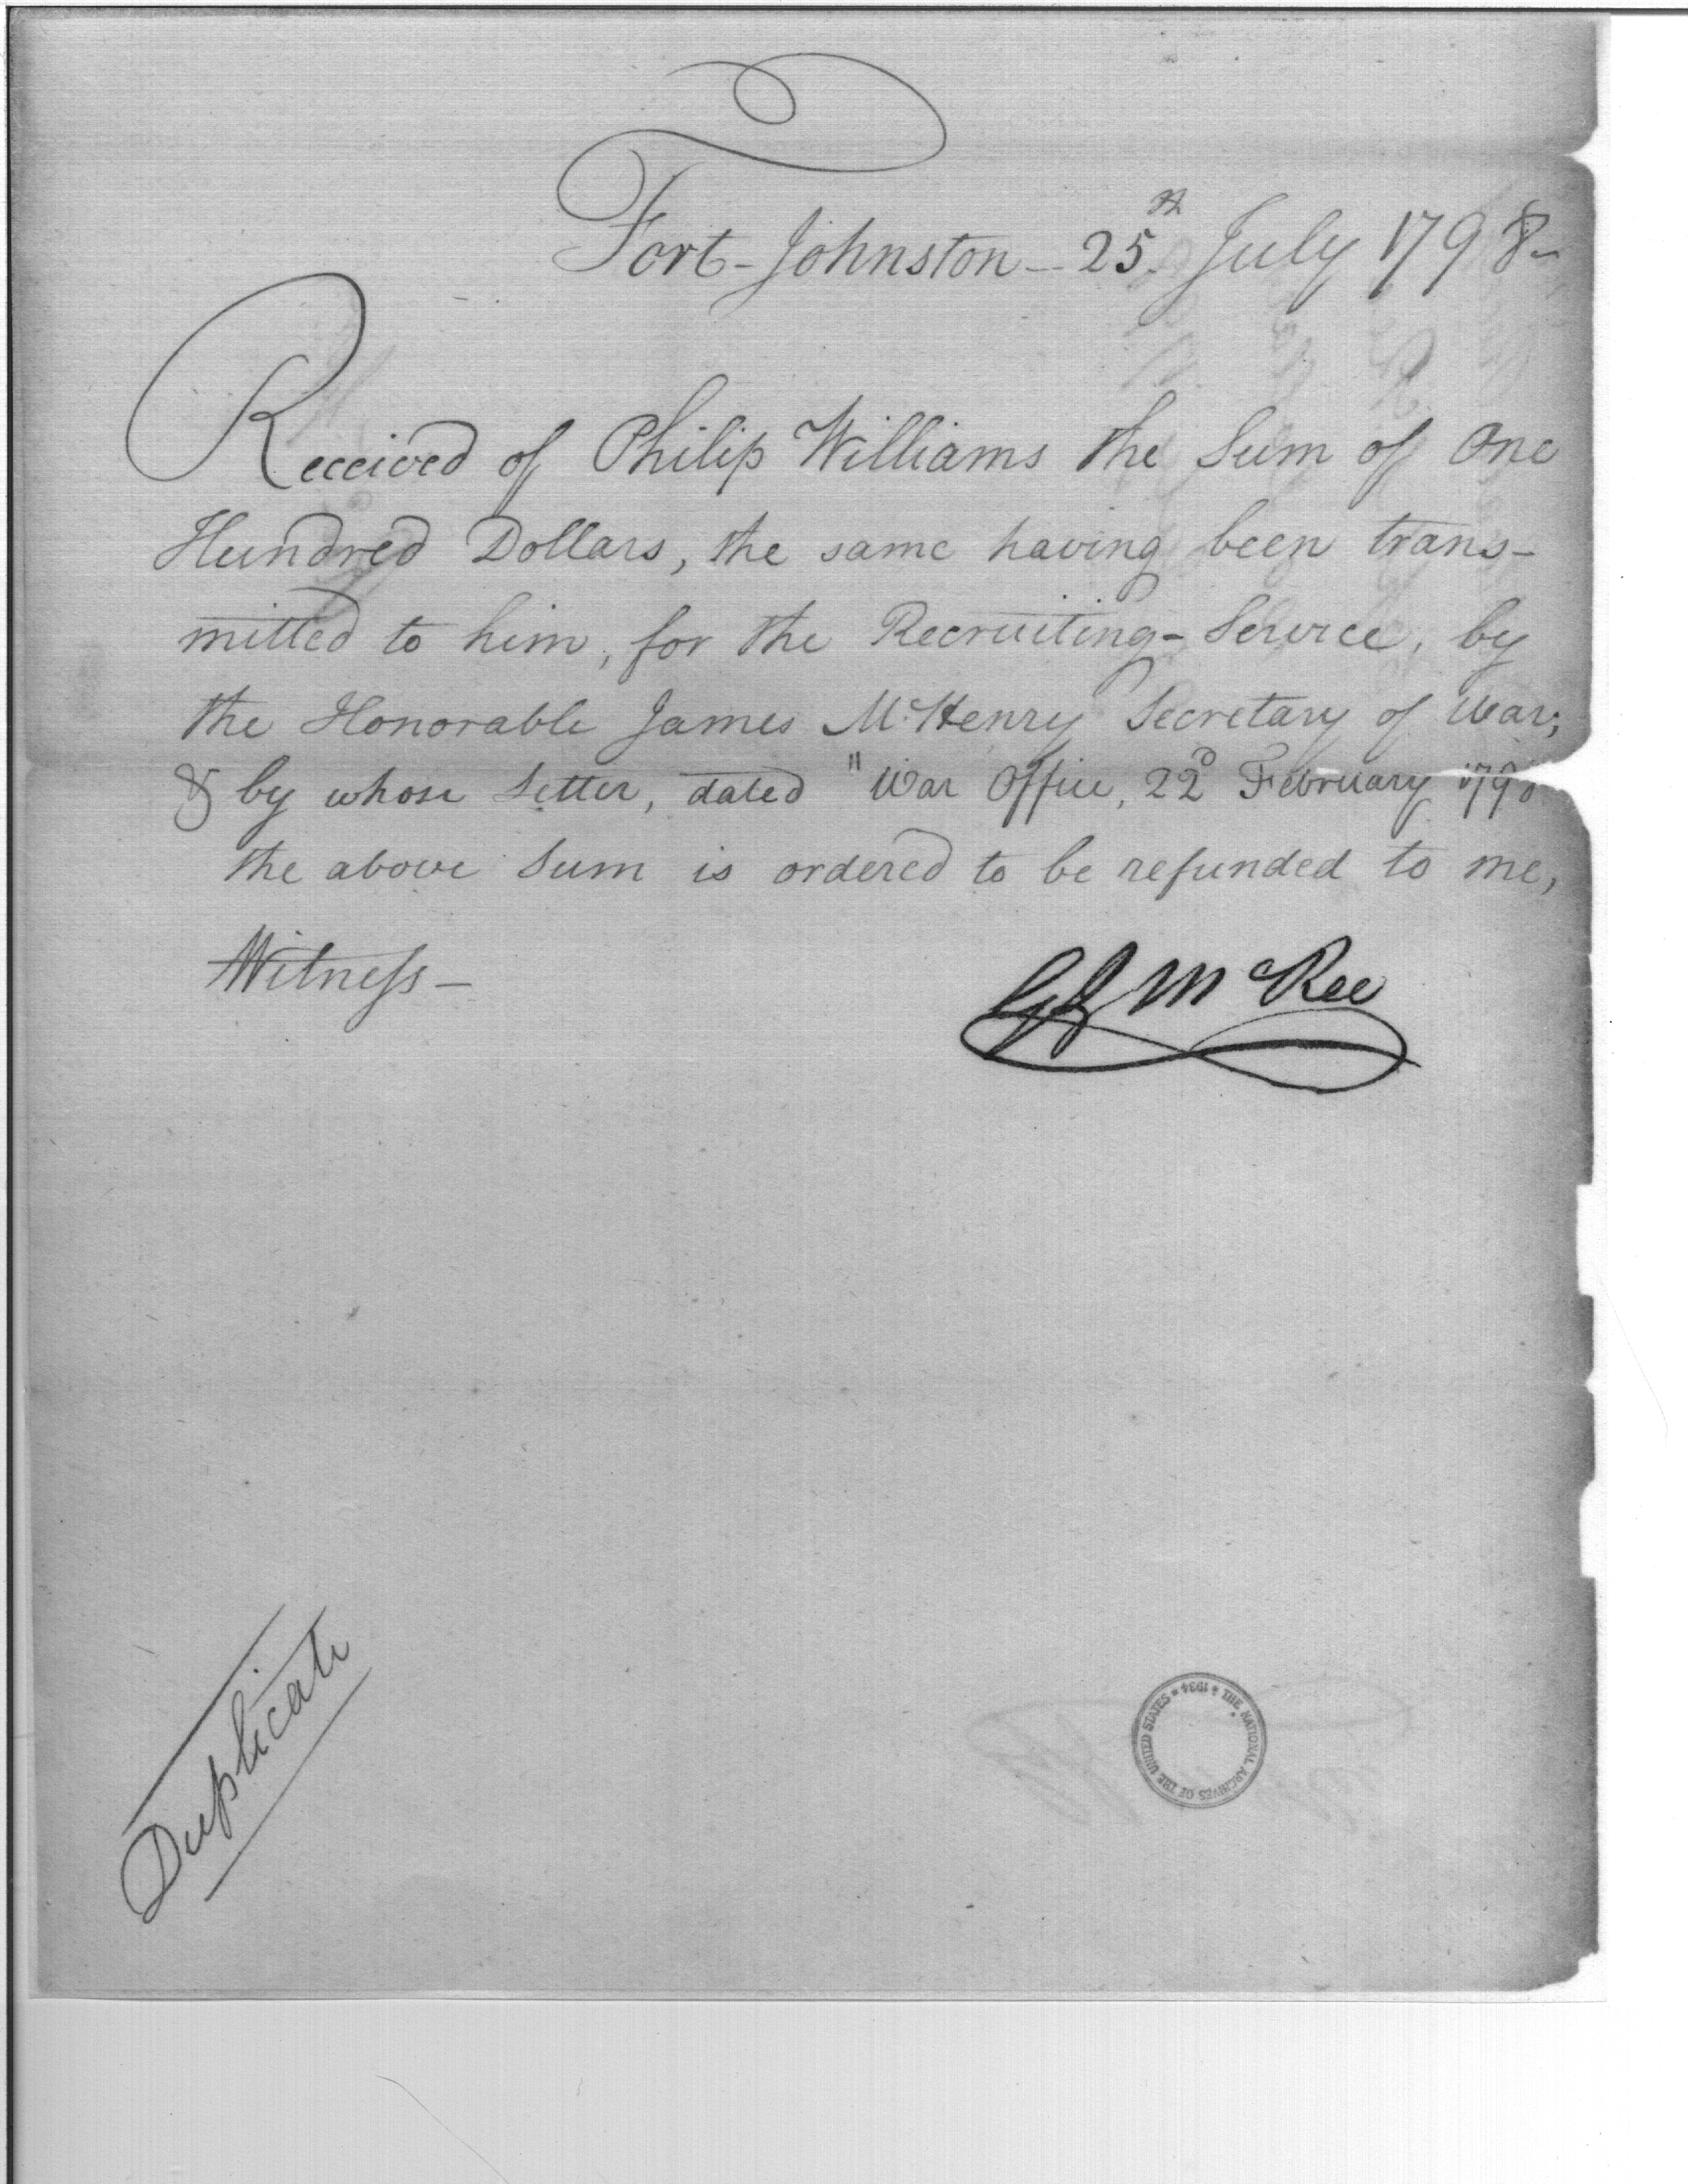 Fort-Johnston - 25th July 1798-
Received of Philip Williams the Sum of One
Hundred Dollars, the same having been trans-
mitted to him, for the Recruiting-Service, by
the Honorable James McHenry Secretary of War;
& by whose Letter, dated "War Office, 22d February 1798
the above Sum is ordered to be refunded to me,
Witness-
McRee
Duplicate
THE NATIONAL ARCHIVES OF THE UNITED STATES * 1934 *